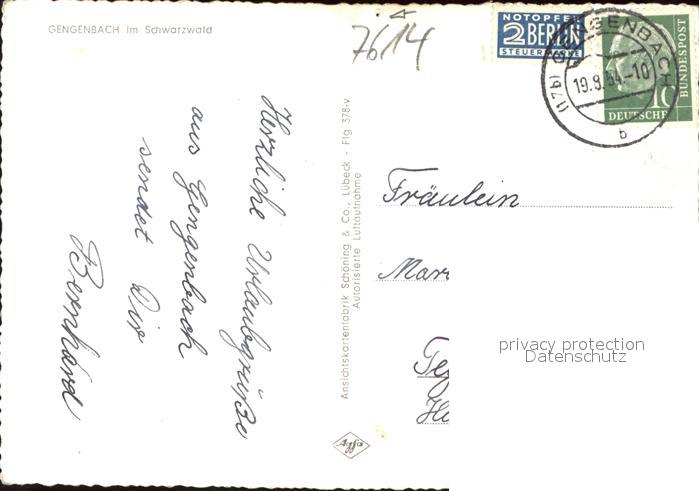 GENGENBACH im Schwarzwald
7614
NOTOPFER
2 BERLIN
STEUERMARKE
GENGENBACH
(17b)
19.8.54.-10
b
10
DEUTSCHE
BUNDESPOST
Herzliche Urlaubgrüße
aus Gengenbach
sendet Dir
Bernhard
Ansichtskartenfabrik Schöning & Co., Lübeck - Flg 378-v
Autorisierte Luftaufnahme
Agfa
Fräulein
Mar
Te
He
privacy protection
Datenschutz